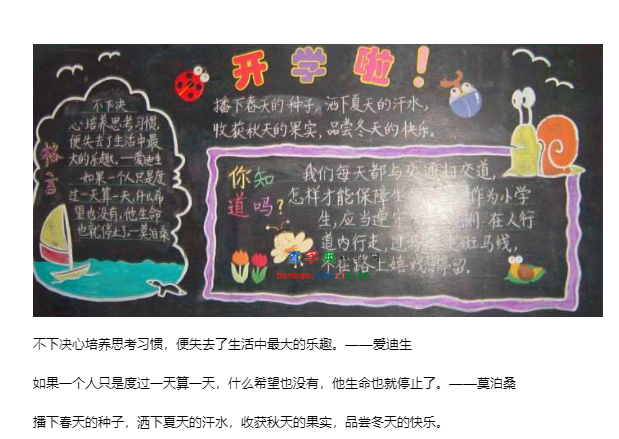 开学啦！
播下春天的种子，洒下夏天的汗水，
收获秋天的果实，品尝冬天的快乐。
格言
不下决
心培养思考习惯，
便失去了生活中最
大的乐趣。—爱迪生
如果一个人只是度
过一天算一天，什么希
望也没有，他生命
也就停止了。—莫泊桑
你知
道吗？
我们每天都与交通打交道，
怎样才能保障生 作为小学
生，应当遵 在人行
道内行走，过 走斑马线，
不在路上嬉戏 停留。
不下决心培养思考习惯，便失去了生活中最大的乐趣。——爱迪生
如果一个人只是度过一天算一天，什么希望也没有，他生命也就停止了。——莫泊桑
播下春天的种子，洒下夏天的汗水，收获秋天的果实，品尝冬天的快乐。